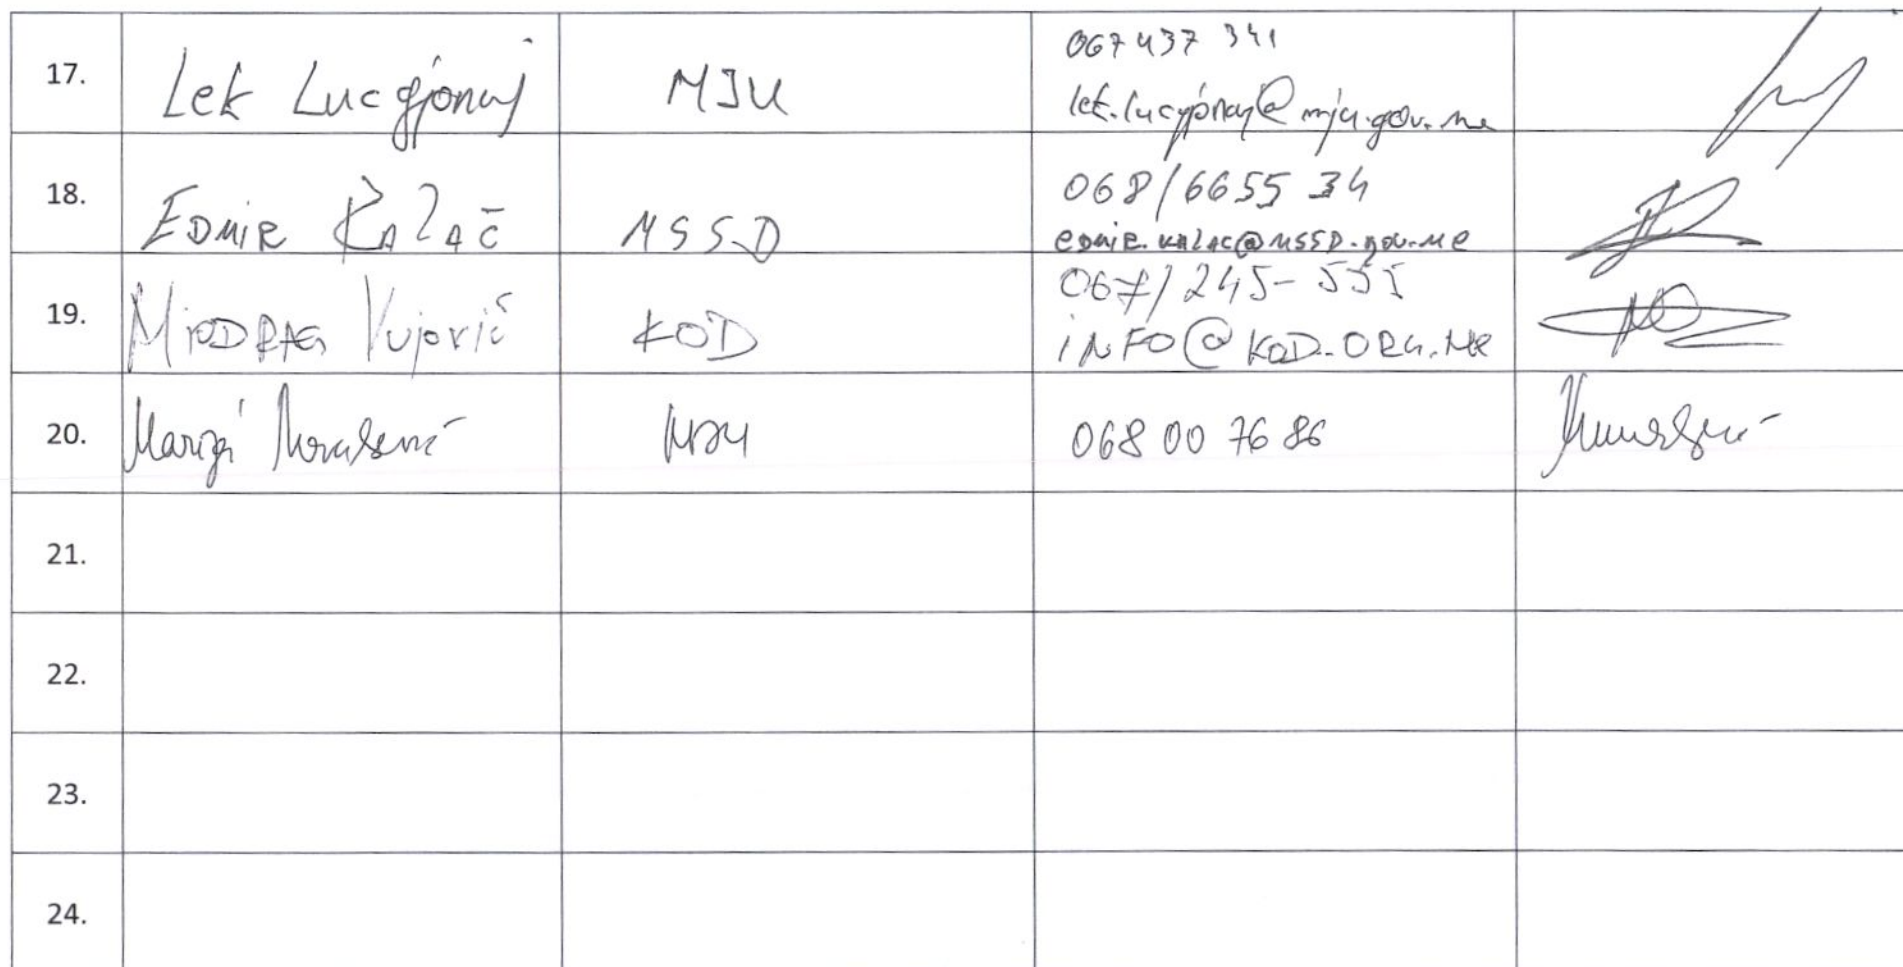 17. Lek Lucgjonaj MJU 067 437 341
lek.lucgjonaj@mju.gov.me
18. EDMIR KALAČ MSSD 068/6655 34
EDMIR.KALAC@MSSD.gov.ME
19. MIODRAG Vujović KOD 067/245-555
iNFO@KOD.ORG.ME
20. Marija 068 00 76 86
21.
22.
23.
24.